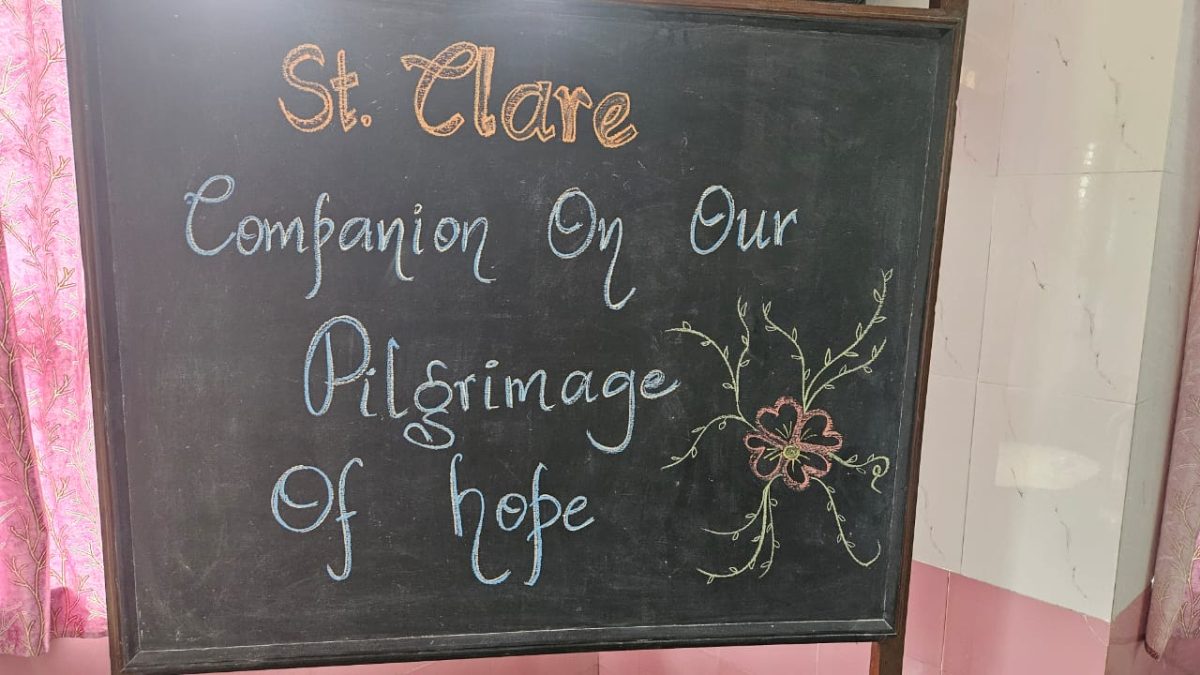 St. Clare
Companion On Our
Pilgrimage
Of hope